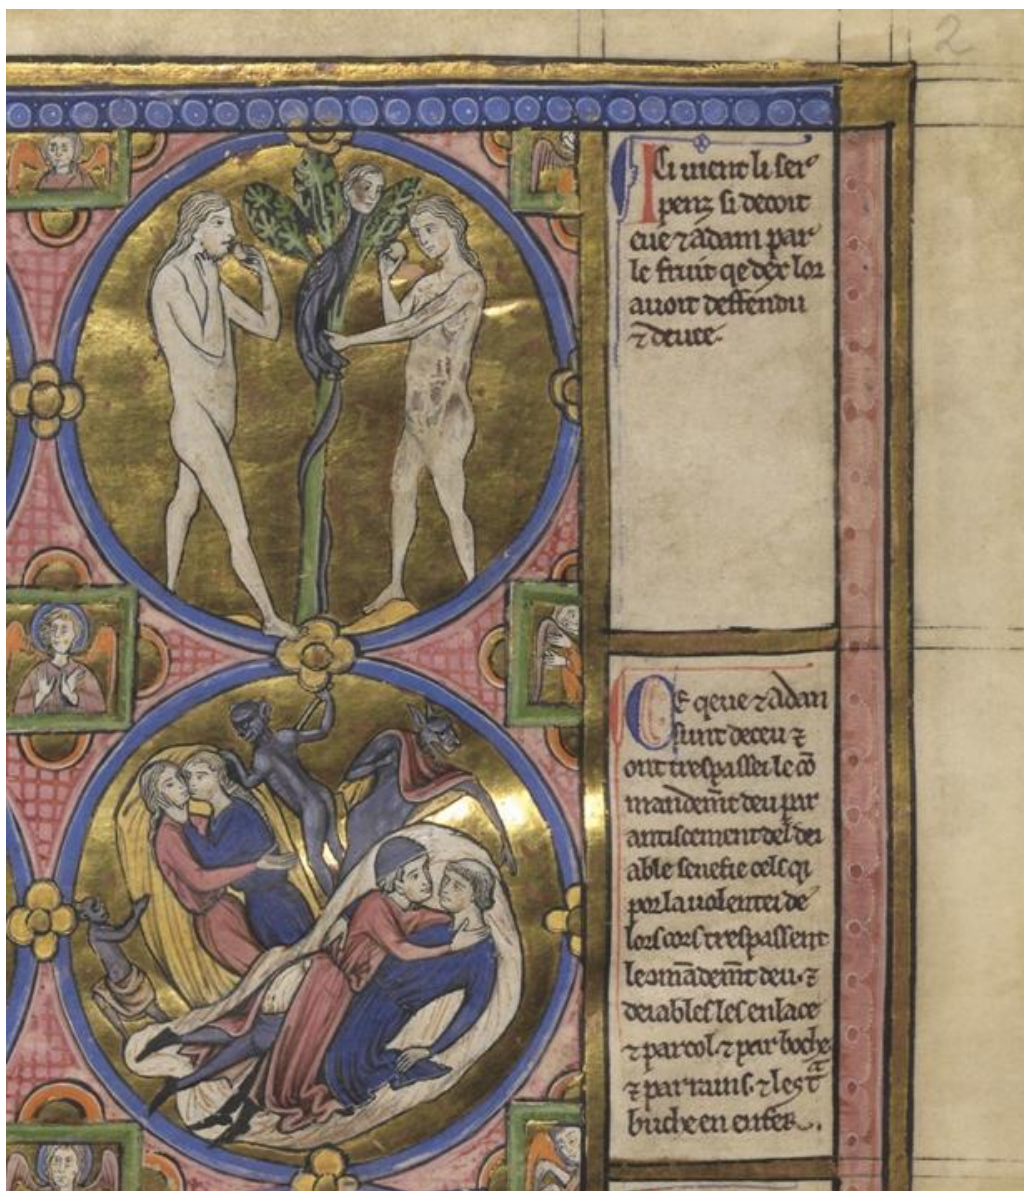 2
Ici uient li ser
penz si decoit
eue ⁊ adam par
le fruit qe dex lor
auoit deffendu
⁊ deuee.
Ce q eue ⁊ adan
sunt deceu ⁊
ont trespasseï le cō
mandem̄t deu par
anticement del dei
able senefie cels qi
por la uolentei de
lors cors trespassent
les mādem̄t deu. ⁊
deiables les enlace
⁊ par col. ⁊ par boche
⁊ par rains. ⁊ les t
buche en enfer.